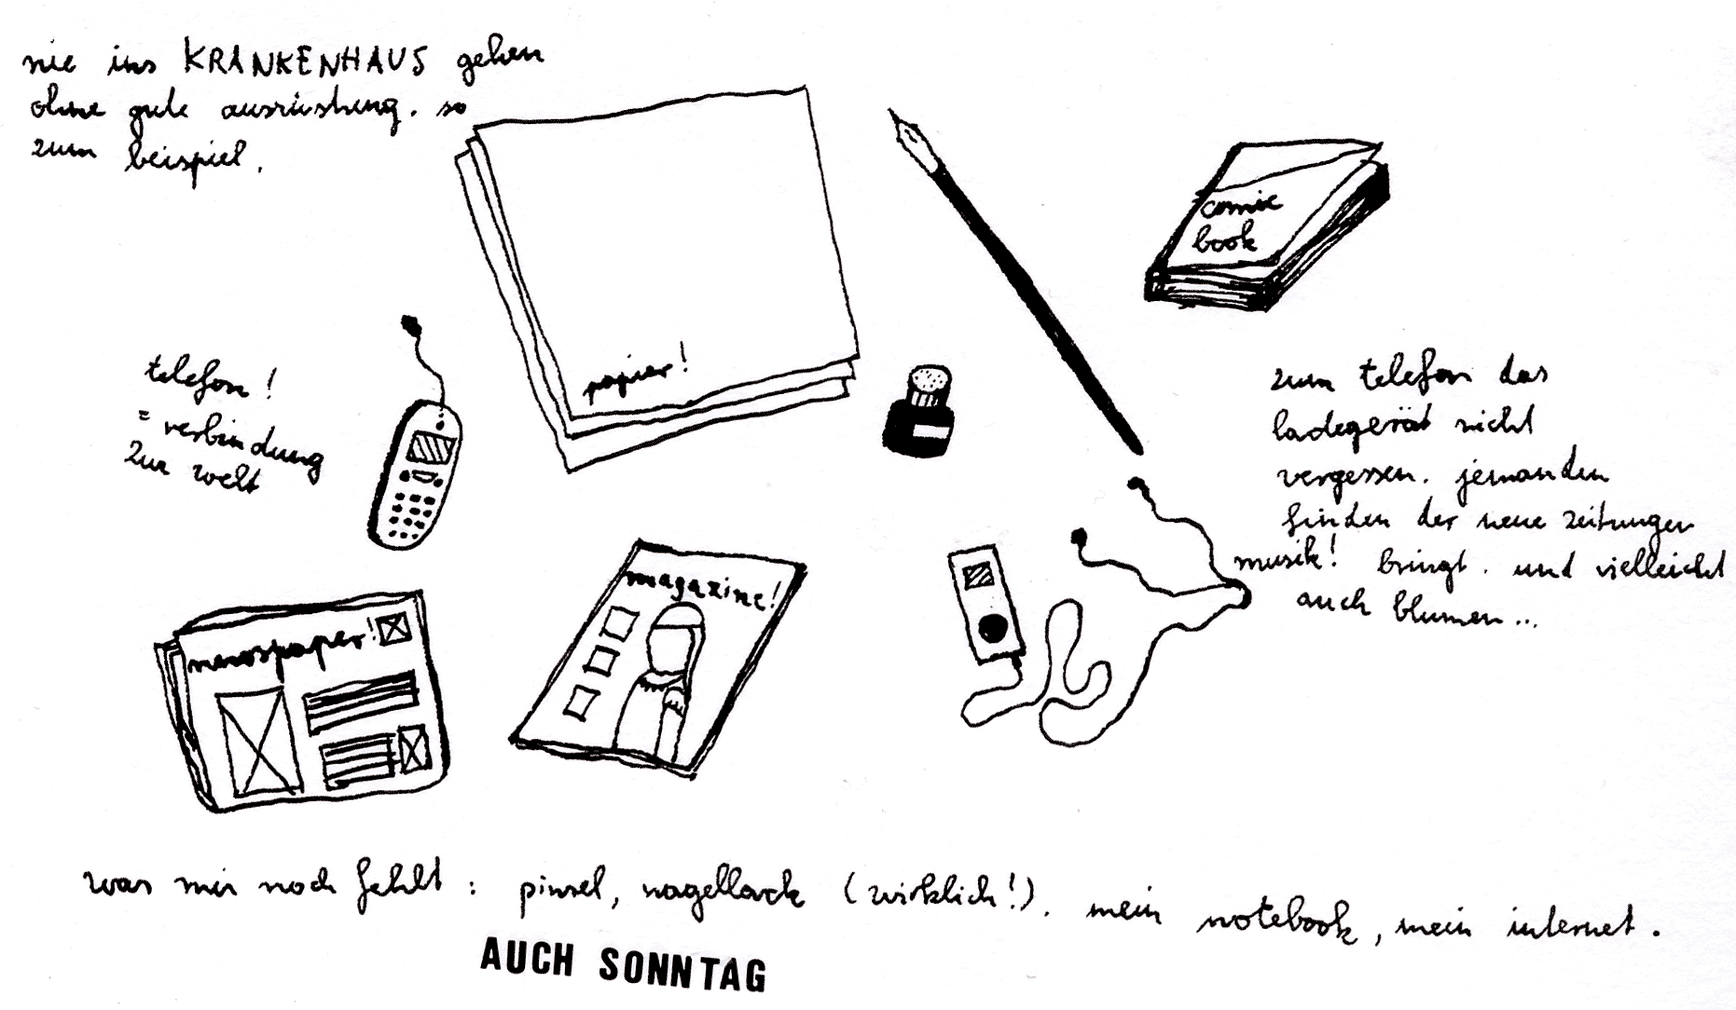 nie ins KRANKENHAUS gehen
ohne gute ausrüstung. so
zum beispiel.
papier!
comic
book
telefon!
= verbindung
zur welt
zum telefon das
ladegerät nicht
vergessen. jemanden
finden der neue zeitungen
bringt. und vielleicht
auch blumen...
musik!
newspaper!
magazine!
was mir noch fehlt: pinsel, nagellack (wirklich!). mein notebook, mein internet.
AUCH SONNTAG